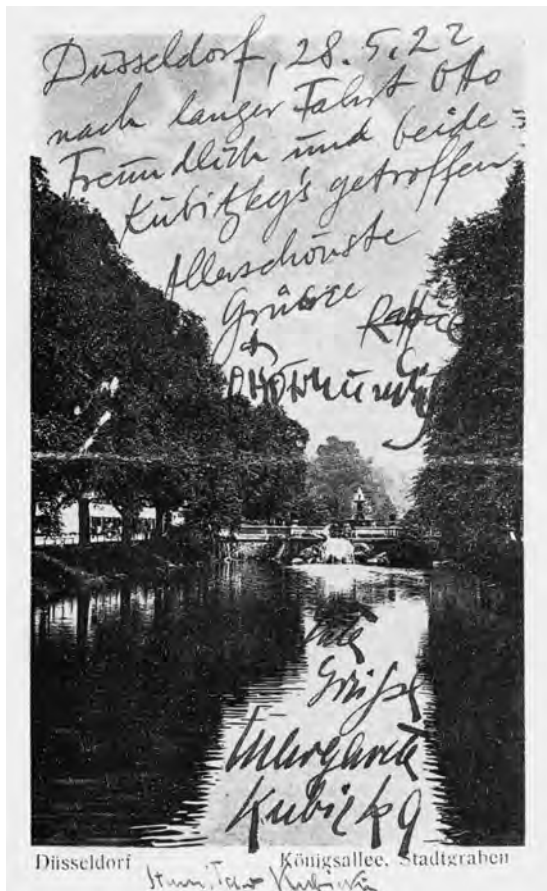 Düsseldorf, 28.5.22
nach langer Fahrt Otto
Freundlich und beide
Kubitzky's getroffen
Allerschönste
Grüsse
Otto Freundlich
Grüße
Margarete
Kubicka
Düsseldorf Königsallee, Stadtgraben
Kubicki